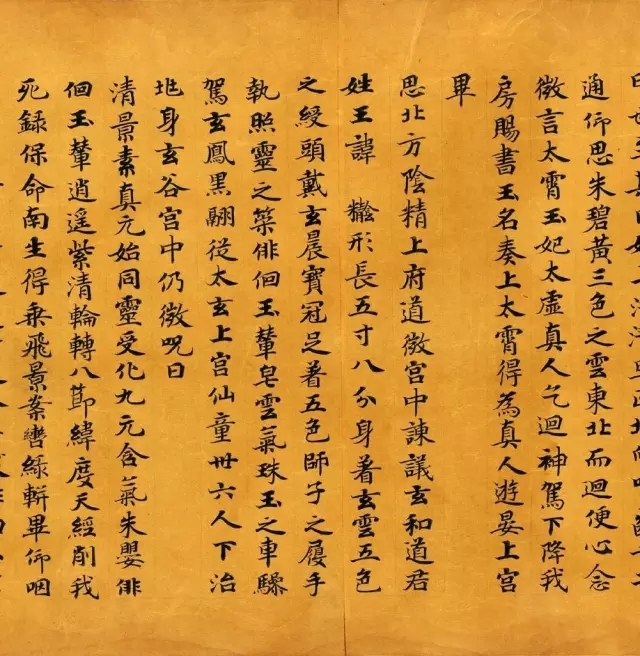 通仰思朱碧黃三色之雲東北而迴便心念
微言太霄玉妃太虛真人乞迴神駕下降我
房賜書玉名奏上太霄得為真人遊晏上宮
畢
思北方陰精上府道微宮中諫議玄和道君
姓王諱 形長五寸八分身着玄雲五色
之綬頭戴玄晨寶冠足着五色師子之履手
執照靈之策俳佪玉輦皂雲氣珠玉之車驂
駕玄鳳黑翮從太玄上宮仙童卅六人下治
兆身玄谷宮中仍微咒曰
清景素真元始同靈受化九元含氣朱嬰俳
佪玉輦逍遙紫清輪轉八節緯度天經削我
死録保命南生得乘飛景案轡綠軿畢仰咽